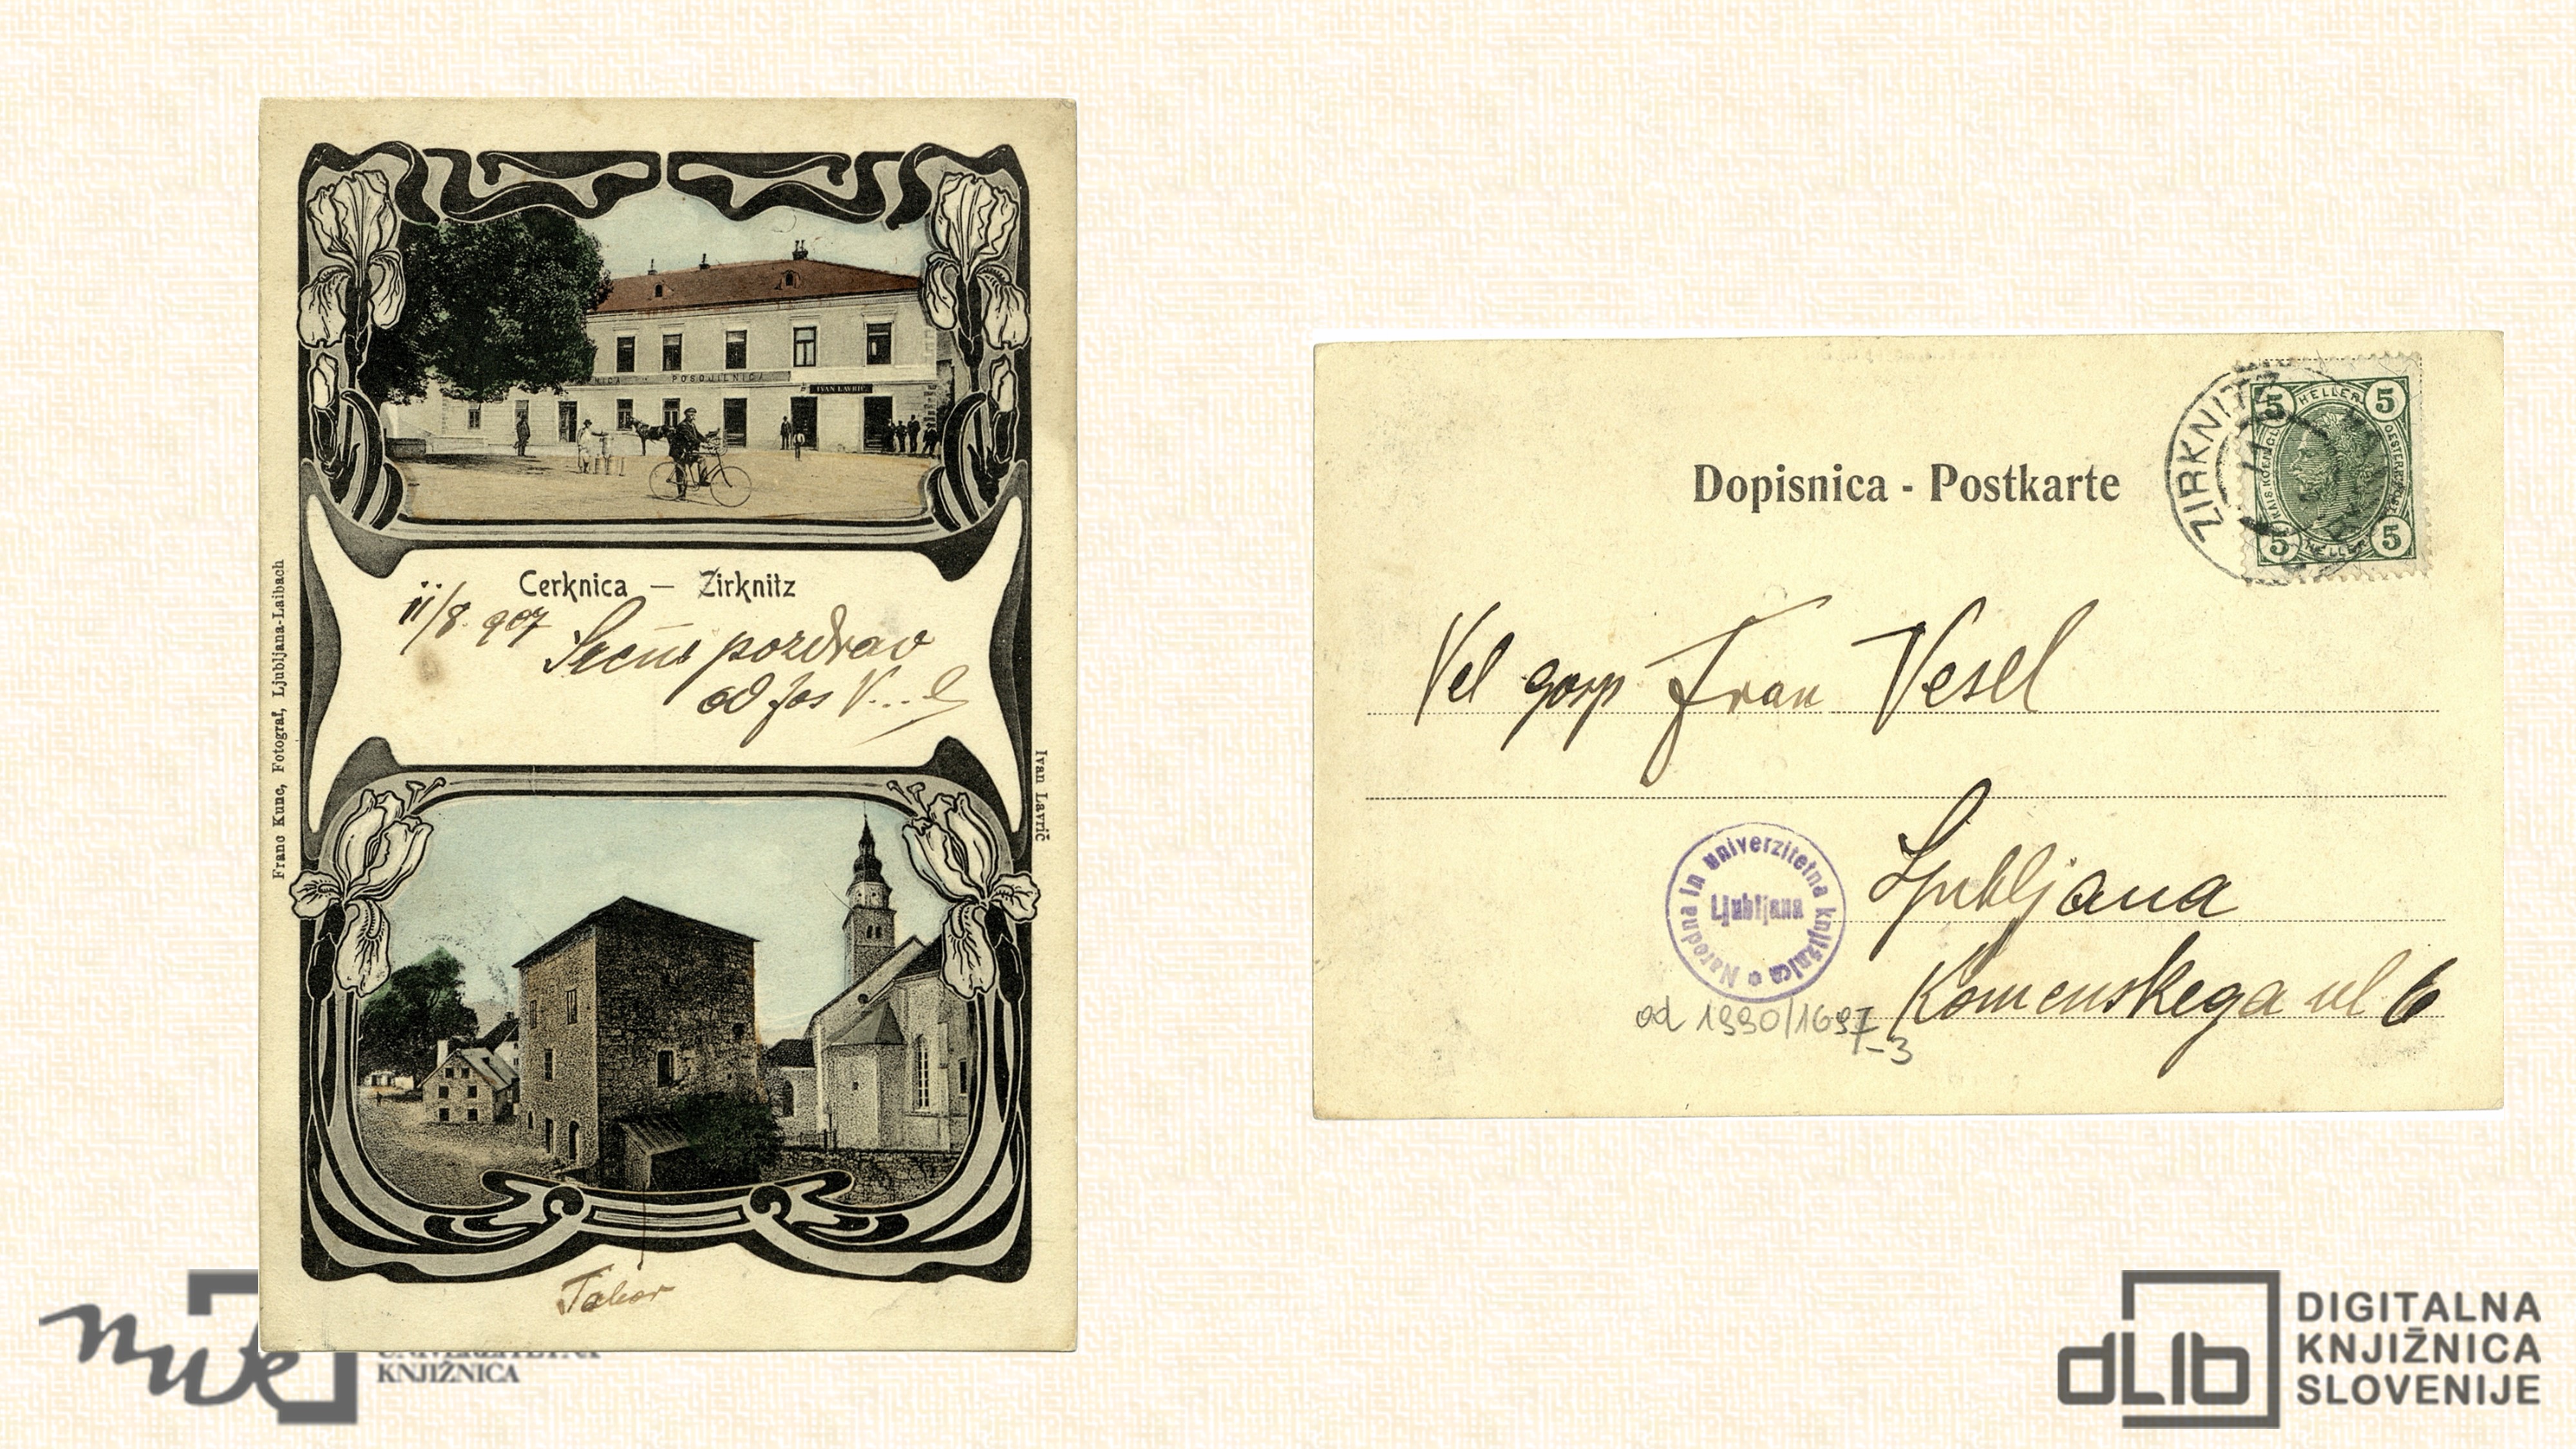 NICA
POSOJILNICA
IVAN LAVRIČ
Cerknica — Zirknitz
11/8. 907
Srčni pozdrav
od Jos V...l
Franc Kunc, Fotograf, Ljubljana-Laibach
Ivan Lavrič
Tabor
Dopisnica - Postkarte
ZIRKNITZ
5 HELLER 5
KAIS. KÖNIGL. OESTERR. POST
5 HELLER 5
Vel gosp Fran Vesel
Ljubljana
Komenskega ul 6
Narodna in univerzitetna knjižnica
Ljubljana
od 1990/1697
-3
nuk
KNJIŽNICA
dLib
DIGITALNA
KNJIŽNICA
SLOVENIJE